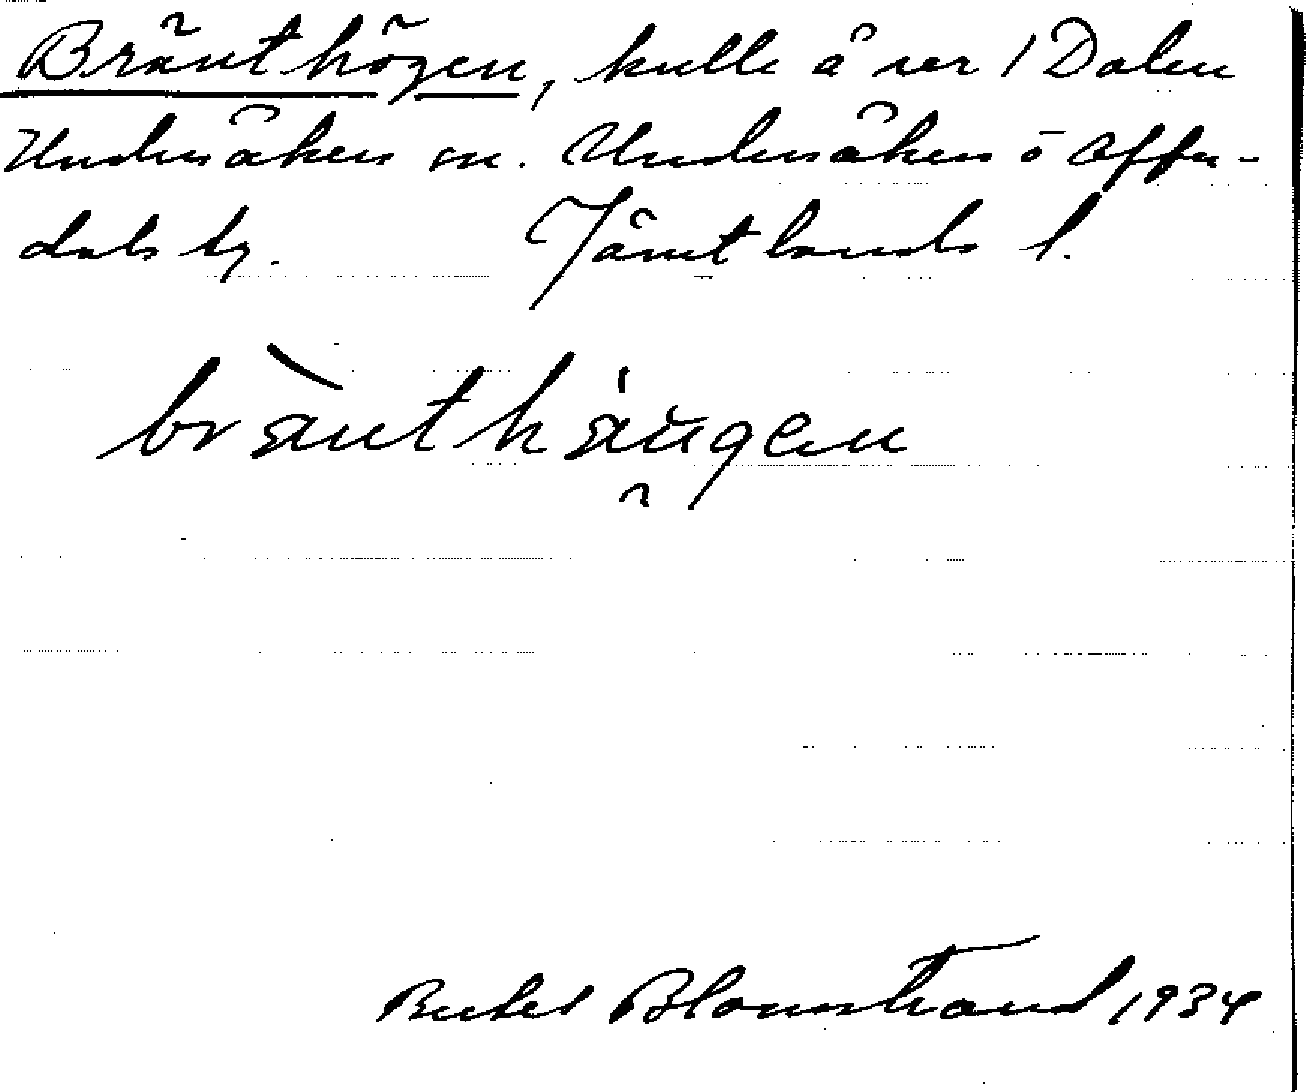 Bränthögen, kulle å ver 1 Dalen
Undersåkers sn. Undersåkers o Offer-
dals tg. Jämtlands l.
brànt häu̯gen
Bertel Blomstrand 1934